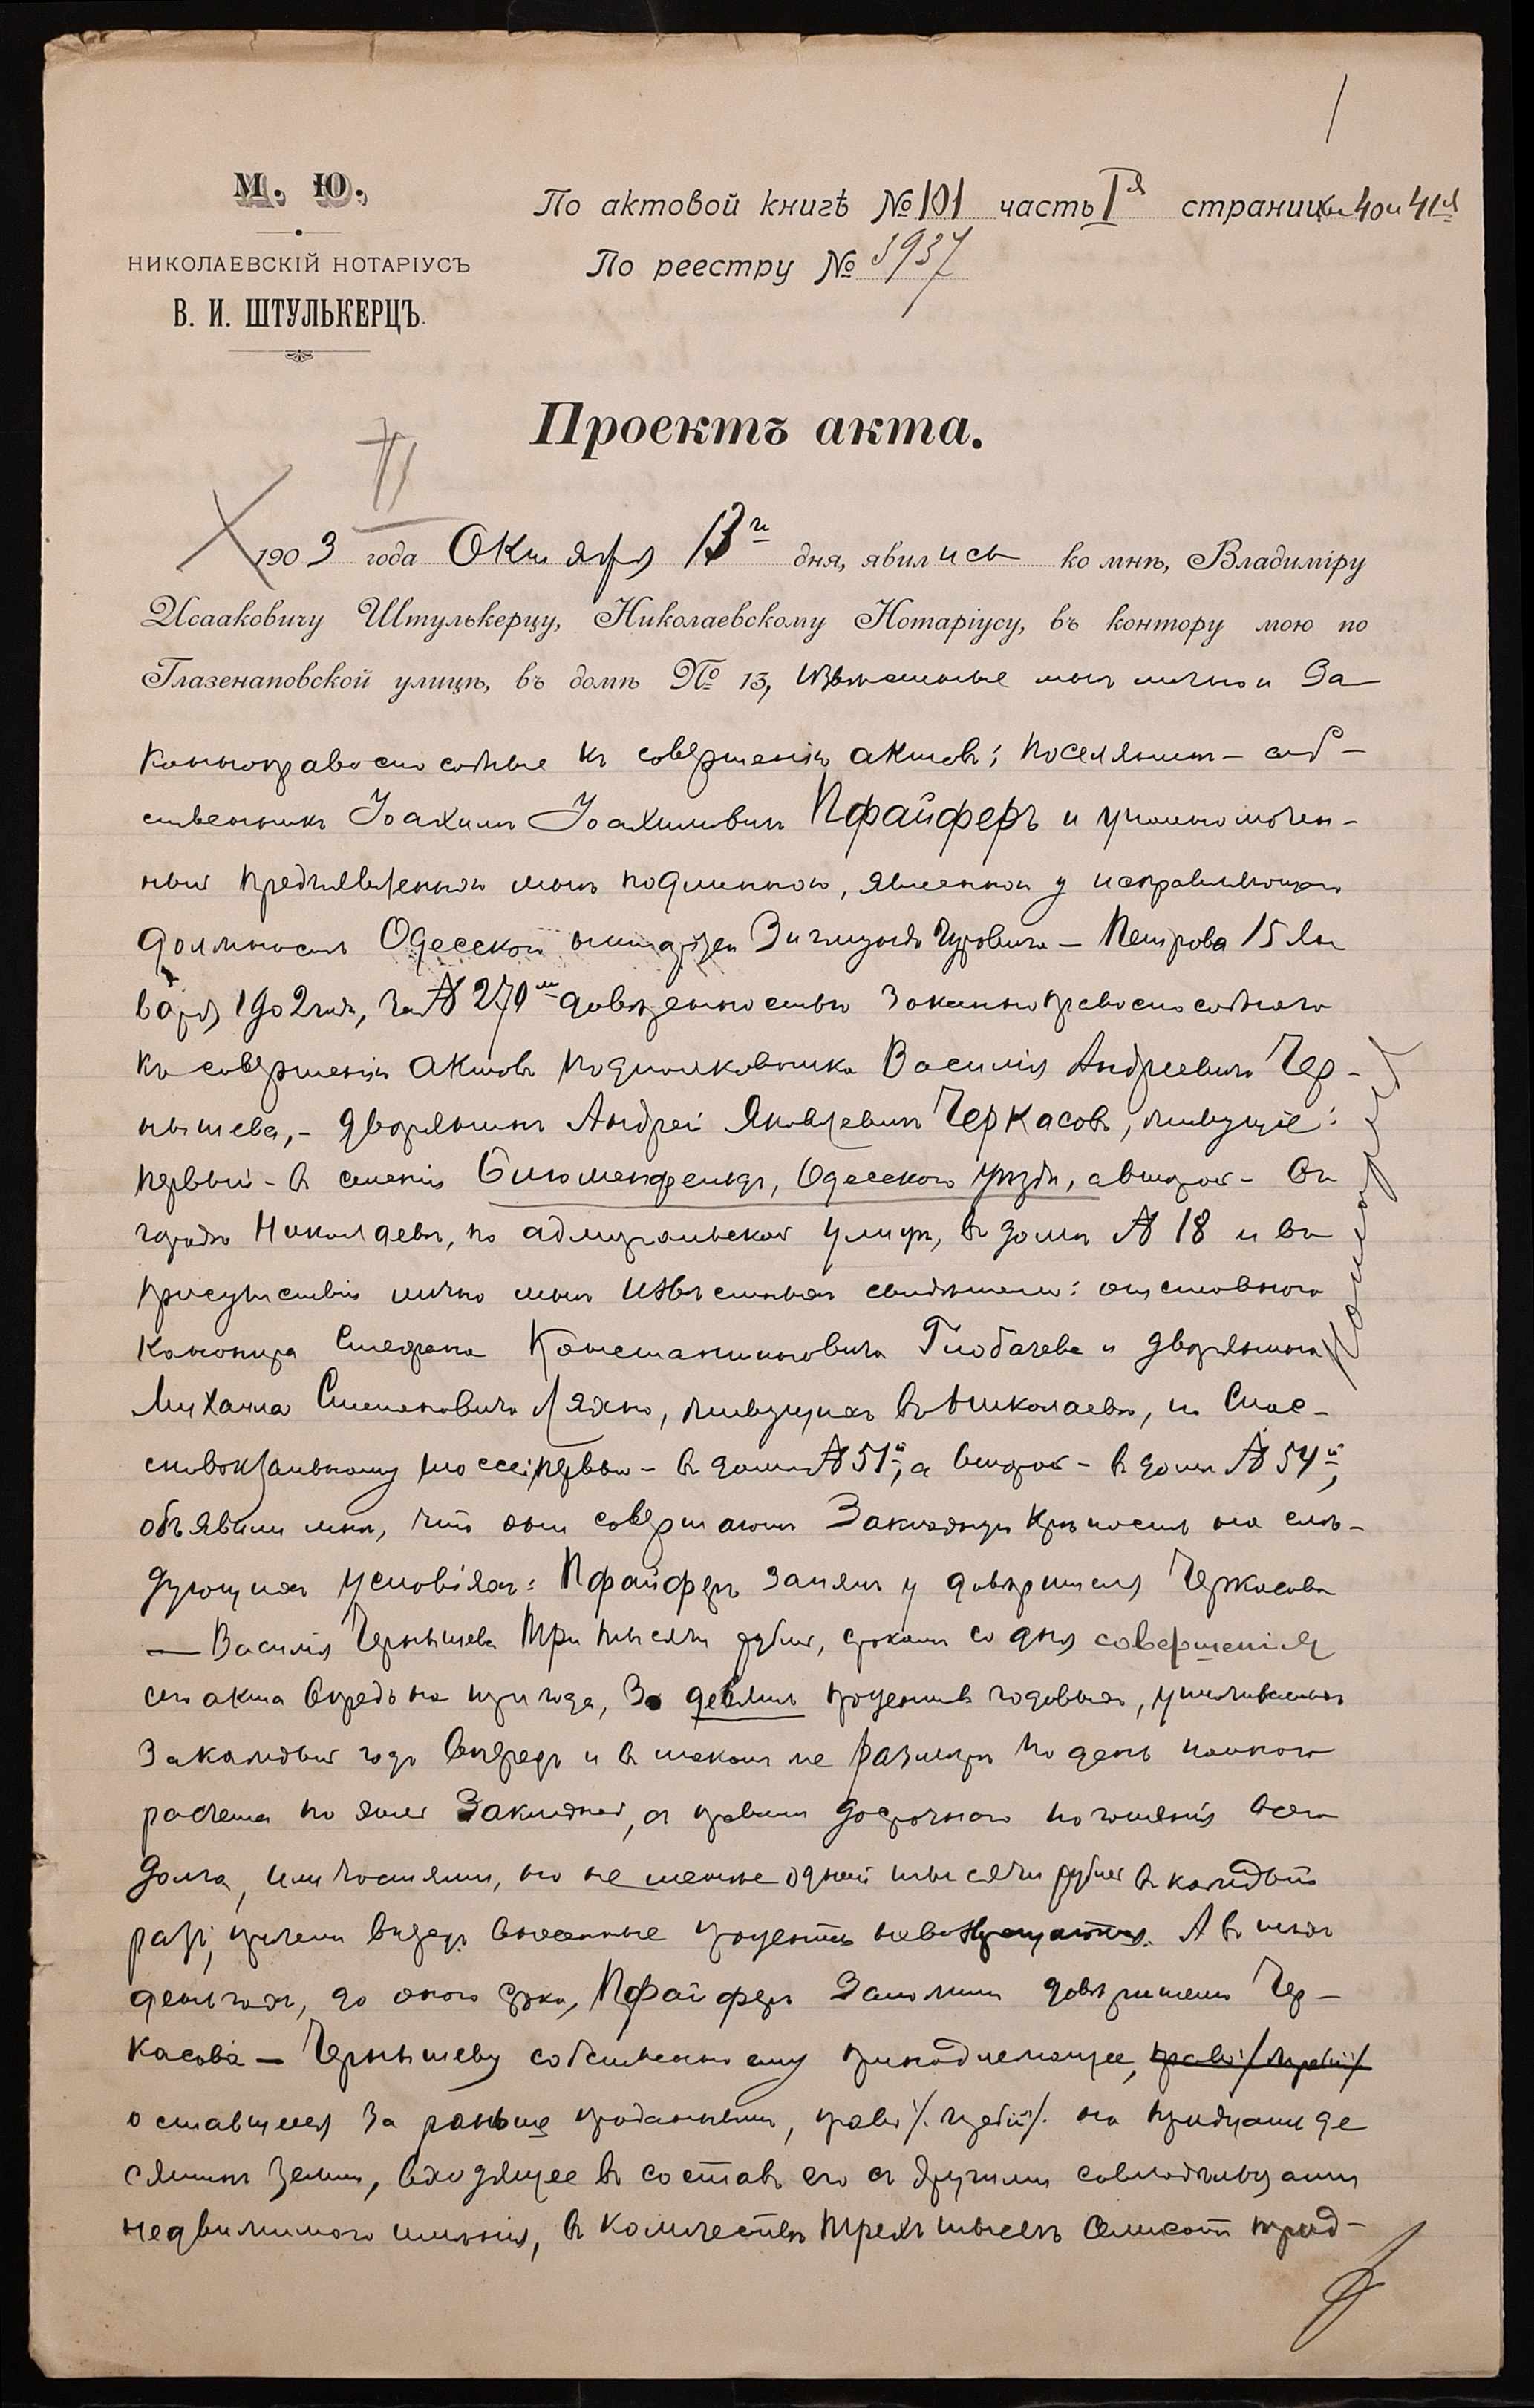 М. Ю.
НИКОЛАЕВСКІЙ НОТАРІУСЪ
В. И. ШТУЛЬКЕРЦЪ.
По актовой книгѣ № 101 часть Iя страницы 40 и 41я
По реестру № 3937
Проектъ акта.
1903 года Октября 13го дня, явились ко мнѣ, Владиміру
Исааковичу Штулькерцу, Николаевскому Нотаріусу, въ контору мою по
Глазенаповской улицѣ, въ домѣ № 13, извѣстные мнѣ лично и за
конноправоспособные къ совершенію актовъ: поселянинъ-соб-
ственникъ Іоахимъ Іоахимовичъ Пфайферъ и уполномочен-
ный предъявленной мнѣ подлинною, явленной у исправляющаго
должность Одесскаго нотаріуса Зигмунда Гуровича-Петрова 15 Ян
варя 1902 года, за № 270 довѣренностью законноправоспособнаго
къ совершенію актовъ подполковника Василія Андреевича Чер-
нышева,- дворянинъ Андрей Яковлевичъ Черкасовъ, живущіе:
первый - в селеніи Блюменфельдъ, Одесскаго уѣзда, а второй - въ
городѣ Николаевѣ, по Адмиральской улицѣ, въ домѣ № 18 и въ
присутствіи лично мнѣ извѣстныхъ свидѣтелей: отставного
канонира Стефана Константиновича Глобачева и дворянина
Михаила Степановича Ляхно, живущихъ въ Николаевѣ, по Спас-
скому шоссе: первый - в домѣ № 51й, а второй - в домѣ № 54й,
объявили мнѣ, что они совершаютъ Закладную крѣпость на слѣ-
дующихъ условіяхъ: Пфайферъ занялъ у довѣрителя Черкасова
— Василія Чернышева три тысячи рублей, срокомъ со дня совершенія
сего акта впредь на три года, за девять процентовъ годовыхъ, уплачиваемыхъ
за каждый годъ впередъ и в такомъ же размѣрѣ по день полного
расчета по этой Закладной, съ правомъ досрочнаго погашенія всего
долга, или частями, но не менѣе одной тысячи рублей в каждый
разъ, причемъ впередъ внесенные проценты невозвращаются. А въ тѣхъ
деньгахъ, до оного срока, Пфайферъ заложилъ довѣрителю Чер-
касова — Чернышеву собственно ему принадлежащее, право /жребій/
оставшееся за раньше проданнымъ, право /жребій/ на тридцать де
сятинъ земли, входящее въ составъ его съ другими совладѣльцами
недвижимого имѣнія, в количествѣ трехъ тысячъ семисотъ трид-